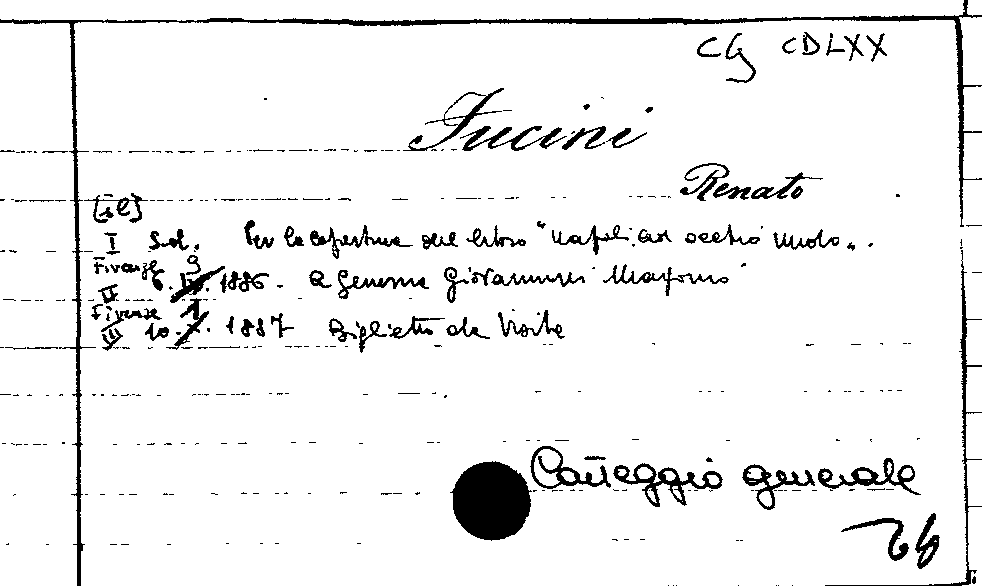 CG CDLXX
Fucini
Renato
[sl]
I s.d. Per la copertura del libro "Napoli ad occhio nudo".
Firenze 9
II 6. 1886. a Genoma Giovannini Massimo
Firenze 1
III 10. 1887 Biglietto da Visita
Carteggio generale